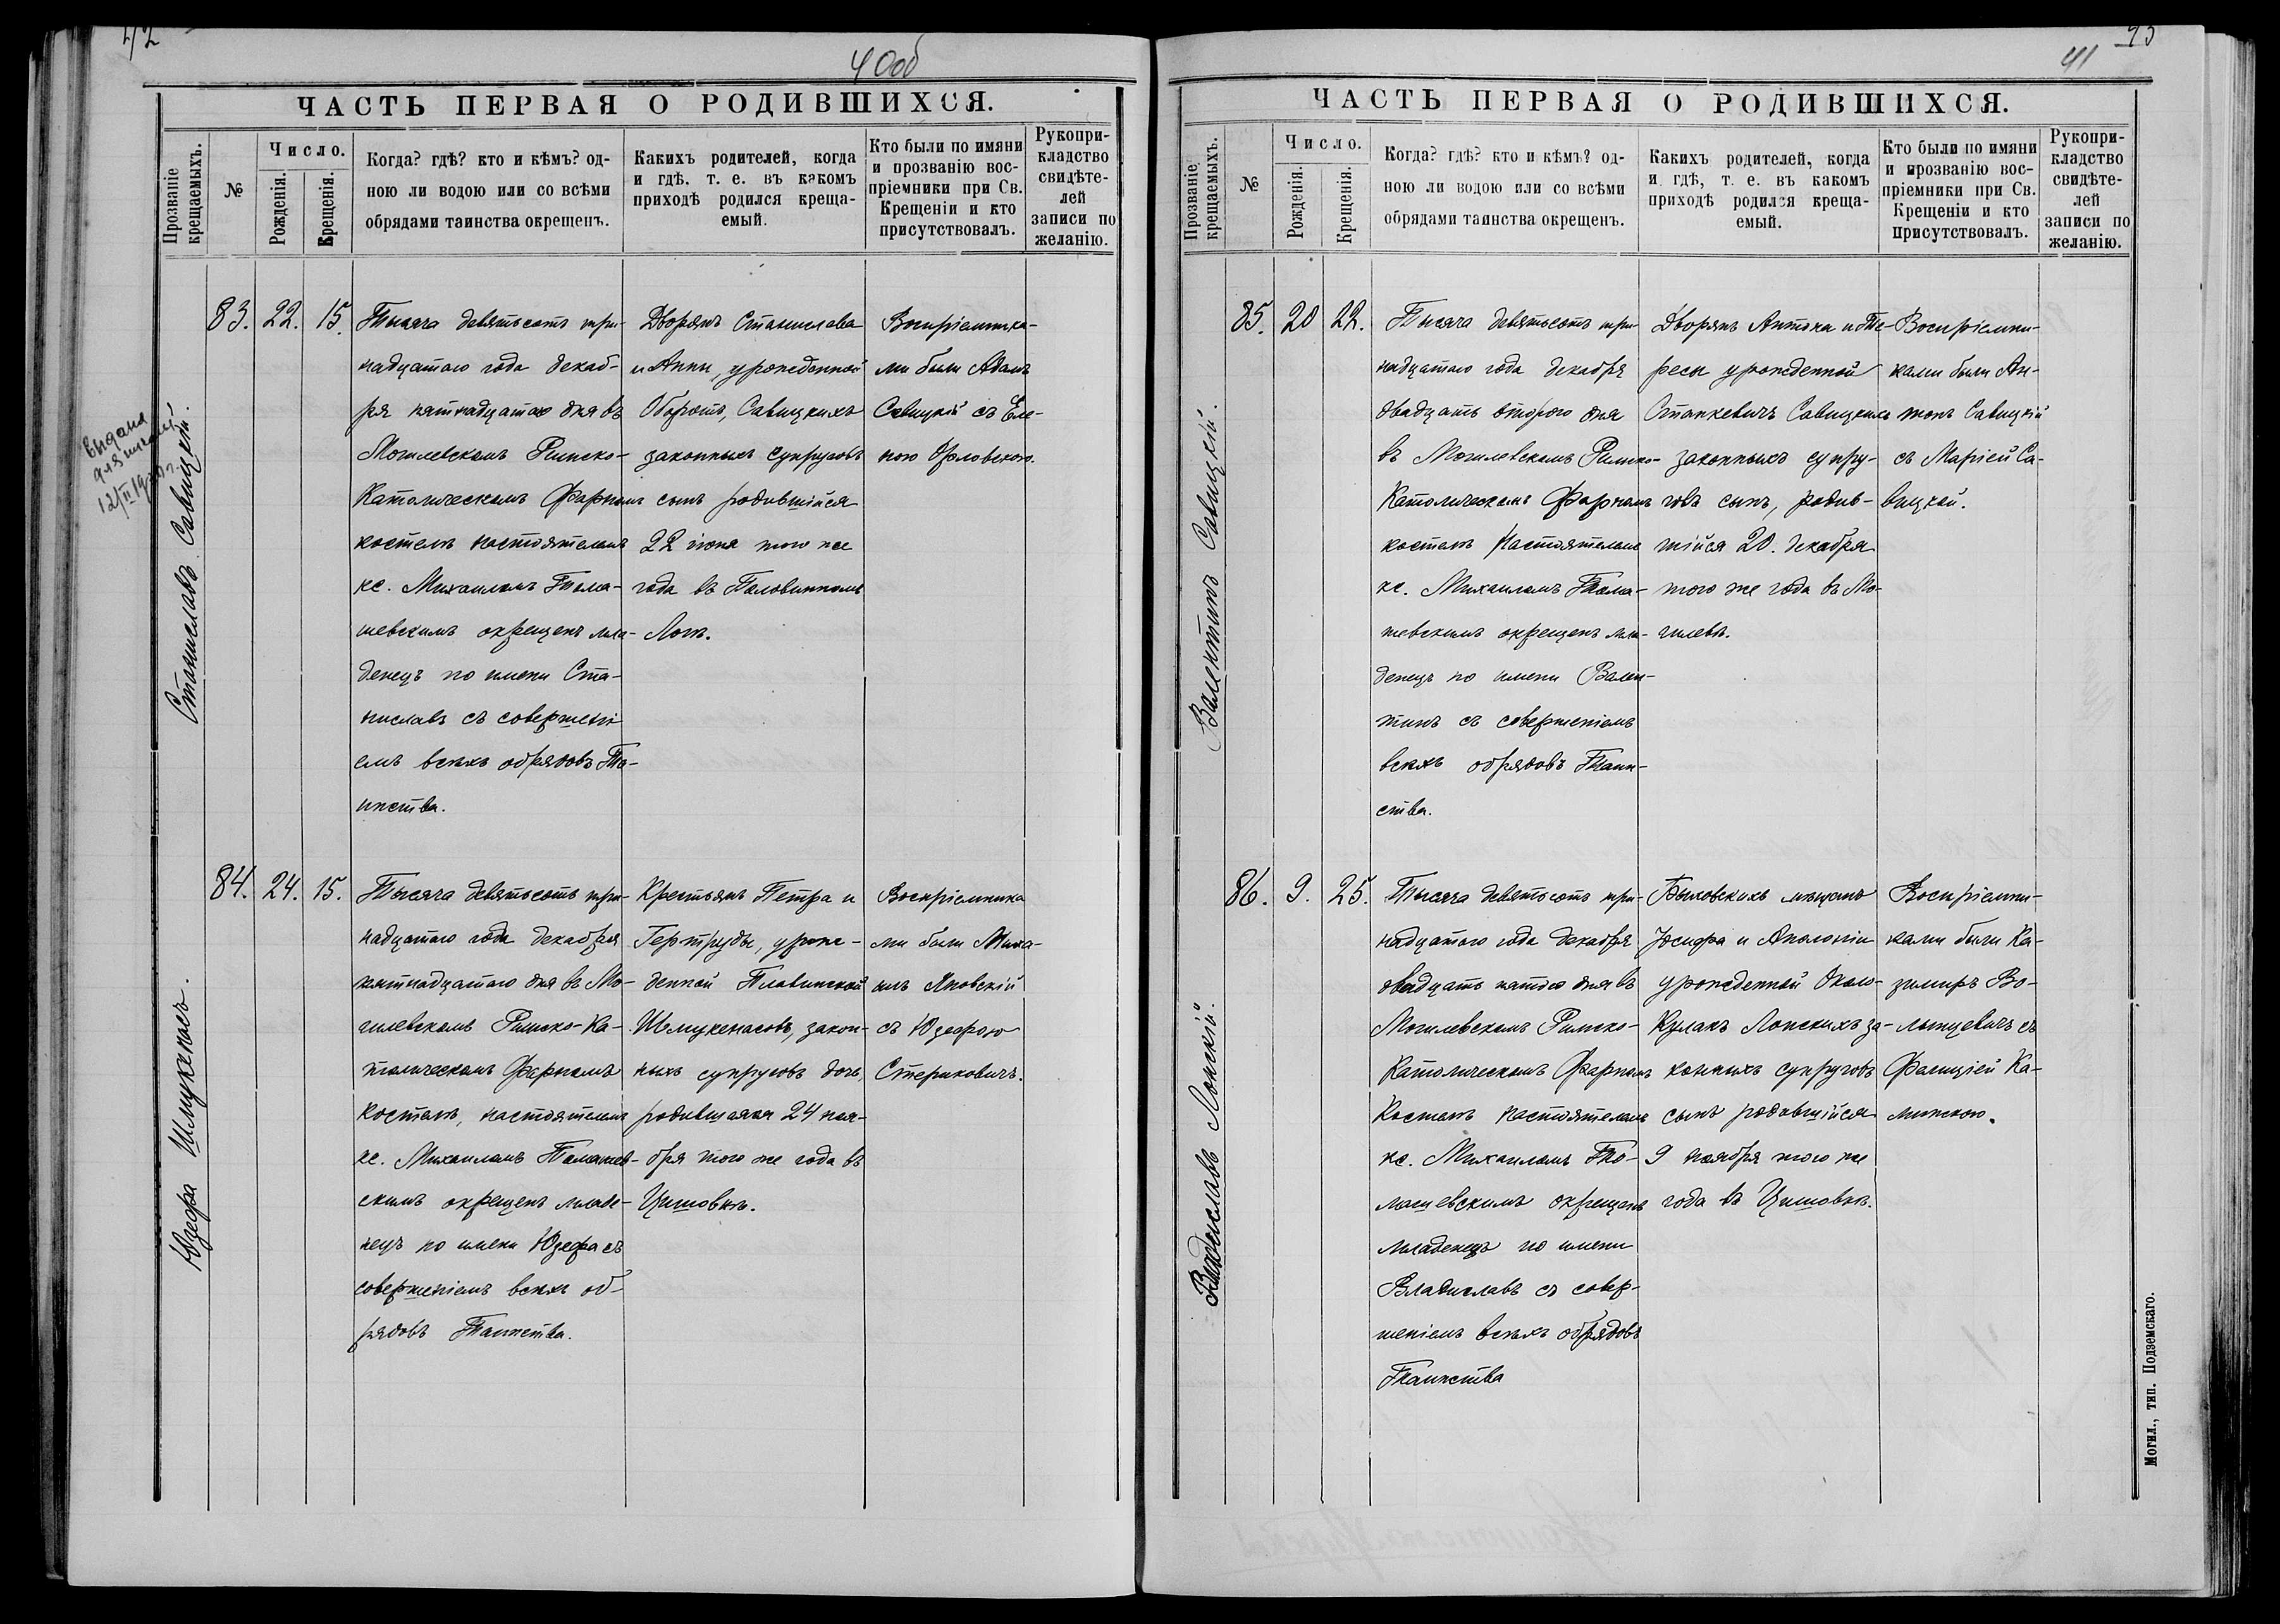 42
40об
ЧАСТЬ ПЕРВАЯ О РОДИВШИХСЯ.
Прозваніе крещаемыхъ.
№
Число.
Рожденія.
Крещенія.
Когда? гдѣ? кто и кѣмъ? од-
ною ли водою или со всѣми
обрядами таинства окрещенъ.
Какихъ родителей, когда
и гдѣ, т. е. въ какомъ
приходѣ родился креща-
емый.
Кто были по имяни
и прозванію вос-
пріемники при Св.
Крещеніи и кто
присутствовалъ.
Рукопри-
кладство
свидѣте-
лей
записи по
желанію.
Станиславъ Савицкій.
83.
22.
15.
Тысяча девятьсотъ три-
надцатаго года декаб-
ря пятнадцатаго дня въ
Могилевскомъ Римско-
Католическомъ Фарномъ
костелѣ настоятелемъ
кс. Михаиломъ Тома-
шевскимъ окрещенъ мла-
денецъ по имени Ста-
ниславъ съ совершені-
емъ всѣхъ обрядовъ Та-
инства.
Дворянъ Станислава
и Анны, урожденной
Оборотъ, Савицкихъ
законныхъ супруговъ
сынъ родившійся
22 іюня того же
года въ Половинномъ
Логѣ.
Воспріемника-
ми были Адамъ
Савицкій съ Еле-
ною Орловскою.
Юзефа Шмукнасъ.
84.
24.
15.
Тысяча девятьсотъ три-
надцатаго года декабря
пятнадцатаго дня въ Мо-
гилевскомъ Римско-Ка-
толическомъ Фарномъ
Костелѣ, настоятелемъ
кс. Михаиломъ Томашев-
скимъ окрещенъ младе-
нецъ по имени Юзефа съ
совершеніемъ всѣхъ об-
рядовъ Таинства.
Крестьянъ Петра и
Гертруды, урож-
денной Плавинской
Шмукенасовъ, закон-
ныхъ супруговъ дочь,
родившаяся 24 ноя-
бря того же года въ
Цишовкѣ.
Воспріемника
ми были Миха-
илъ Яновскій
съ Юзефою
Стериковичъ.
выдана
для
12/II 19
43
41
ЧАСТЬ ПЕРВАЯ О РОДИВШИХСЯ.
Прозваніе крещаемыхъ.
№
Число.
Рожденія.
Крещенія.
Когда? гдѣ? кто и кѣмъ? од-
ною ли водою или со всѣми
обрядами таинства окрещенъ.
Какихъ родителей, когда
и гдѣ, т. е. въ какомъ
приходѣ родился креща-
емый.
Кто были по имяни
и прозванію вос-
пріемники при Св.
Крещеніи и кто
присутствовалъ.
Рукопри-
кладство
свидѣте-
лей
записи по
желанію.
Валентинъ Савицкій.
85.
20
22.
Тысяча девятьсотъ три-
надцатаго года декабря
двадцать второго дня
въ Могилевскомъ Римско-
Католическомъ Фарномъ
костелѣ Настоятелемъ
кс. Михаиломъ Тома-
шевскимъ окрещенъ мла-
денецъ по имени Вален-
тинъ съ совершеніемъ
всѣхъ обрядовъ Таин-
ства.
Дворянъ Антона и Те-
ресы урожденной
Станкевичъ Савицкихъ
законныхъ супру-
говъ сынъ, родив-
шійся 20. декабря
того же года въ Мо-
гилевѣ.
Воспріемни-
ками были Ан-
тонъ Савицкій
съ Маріей Са-
вицкой.
Владиславъ Лонскій.
86.
9.
25.
Тысяча девятьсотъ три-
надцатаго года декабря
двадцать пятаго дня въ
Могилевскомъ Римско-
Католическомъ Фарномъ
Костелѣ настоятелемъ
кс. Михаиломъ То-
машевскимъ окрещенъ
младенецъ по имени
Владиславъ съ совер-
шеніемъ всѣхъ обрядовъ
Таинства
Быховскихъ мѣщанъ
Іосифа и Аполоніи
урожденной Околo-
Кулакъ Лонскихъ за-
конныхъ супруговъ
сынъ родившійся
9 ноября того же
года въ Цишовкѣ.
Воспріемни-
ками были Ка-
зимиръ Во-
льщевичъ съ
Фелиціей Ка-
минскою.
Могил., тип. Подземскаго.